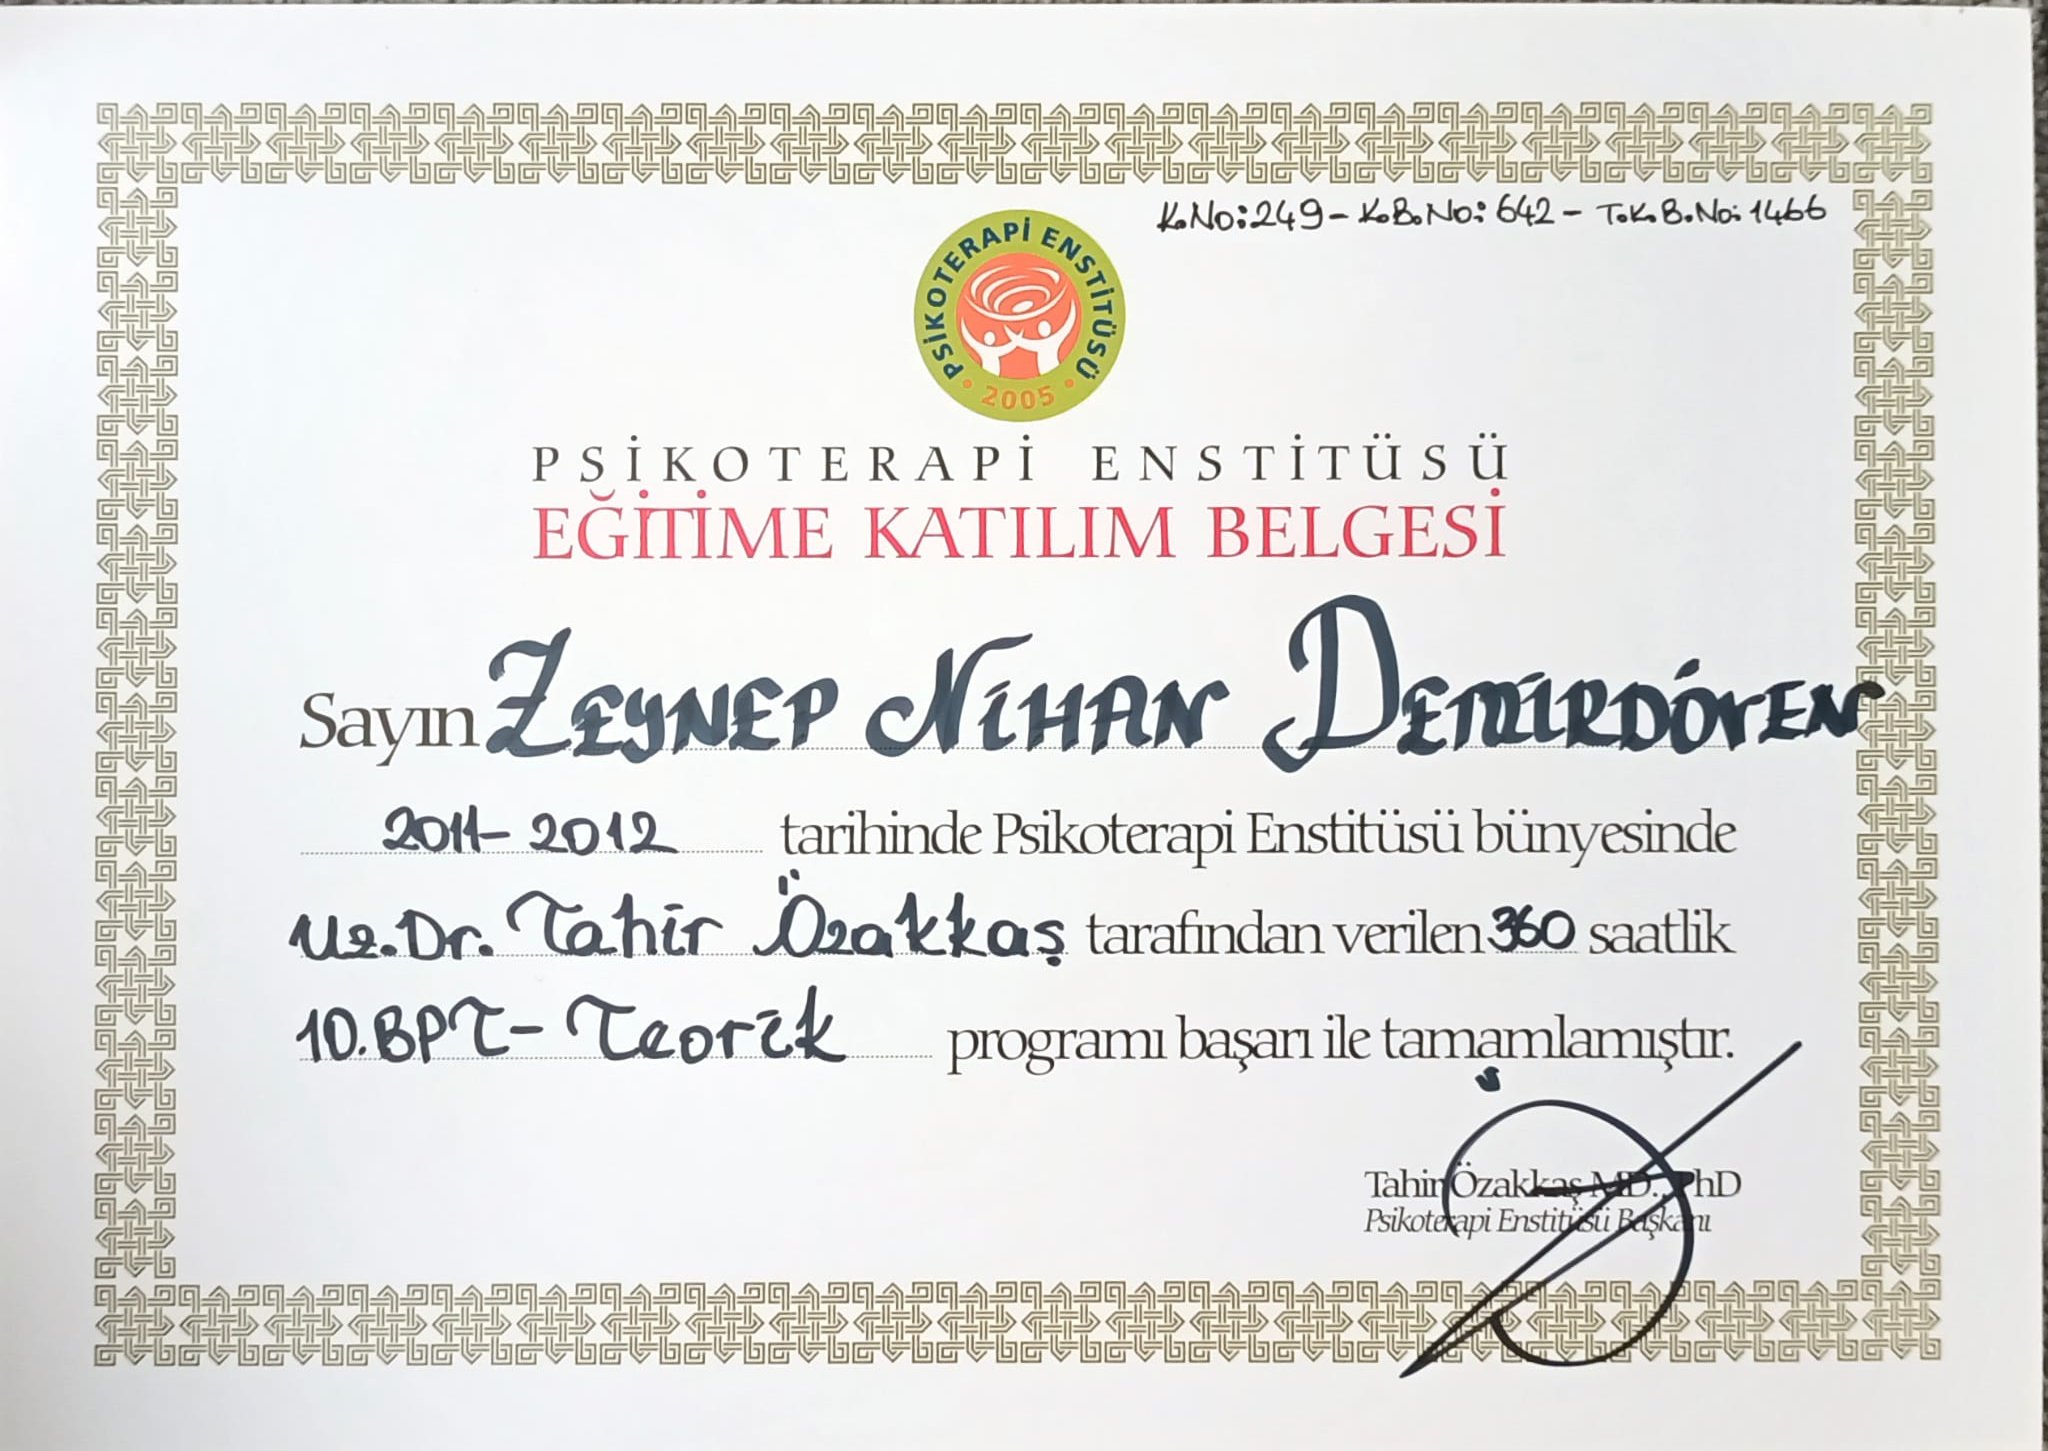 K.No:249- K.B.No: 642 - T.K.B.No: 1466
PSİKOTERAPİ ENSTİTÜSÜ
• 2005 •
PSİKOTERAPİ ENSTİTÜSÜ
EĞİTİME KATILIM BELGESİ
Sayın ZEYNEP NİHAN DEMİRDÖVEN
2011-2012 tarihinde Psikoterapi Enstitüsü bünyesinde
Uz.Dr. Tahir Özakkaş tarafından verilen 360 saatlik
10.BPT- Teorik programı başarı ile tamamlamıştır.
Tahir Özakkaş MD., PhD
Psikoterapi Enstitüsü Başkanı